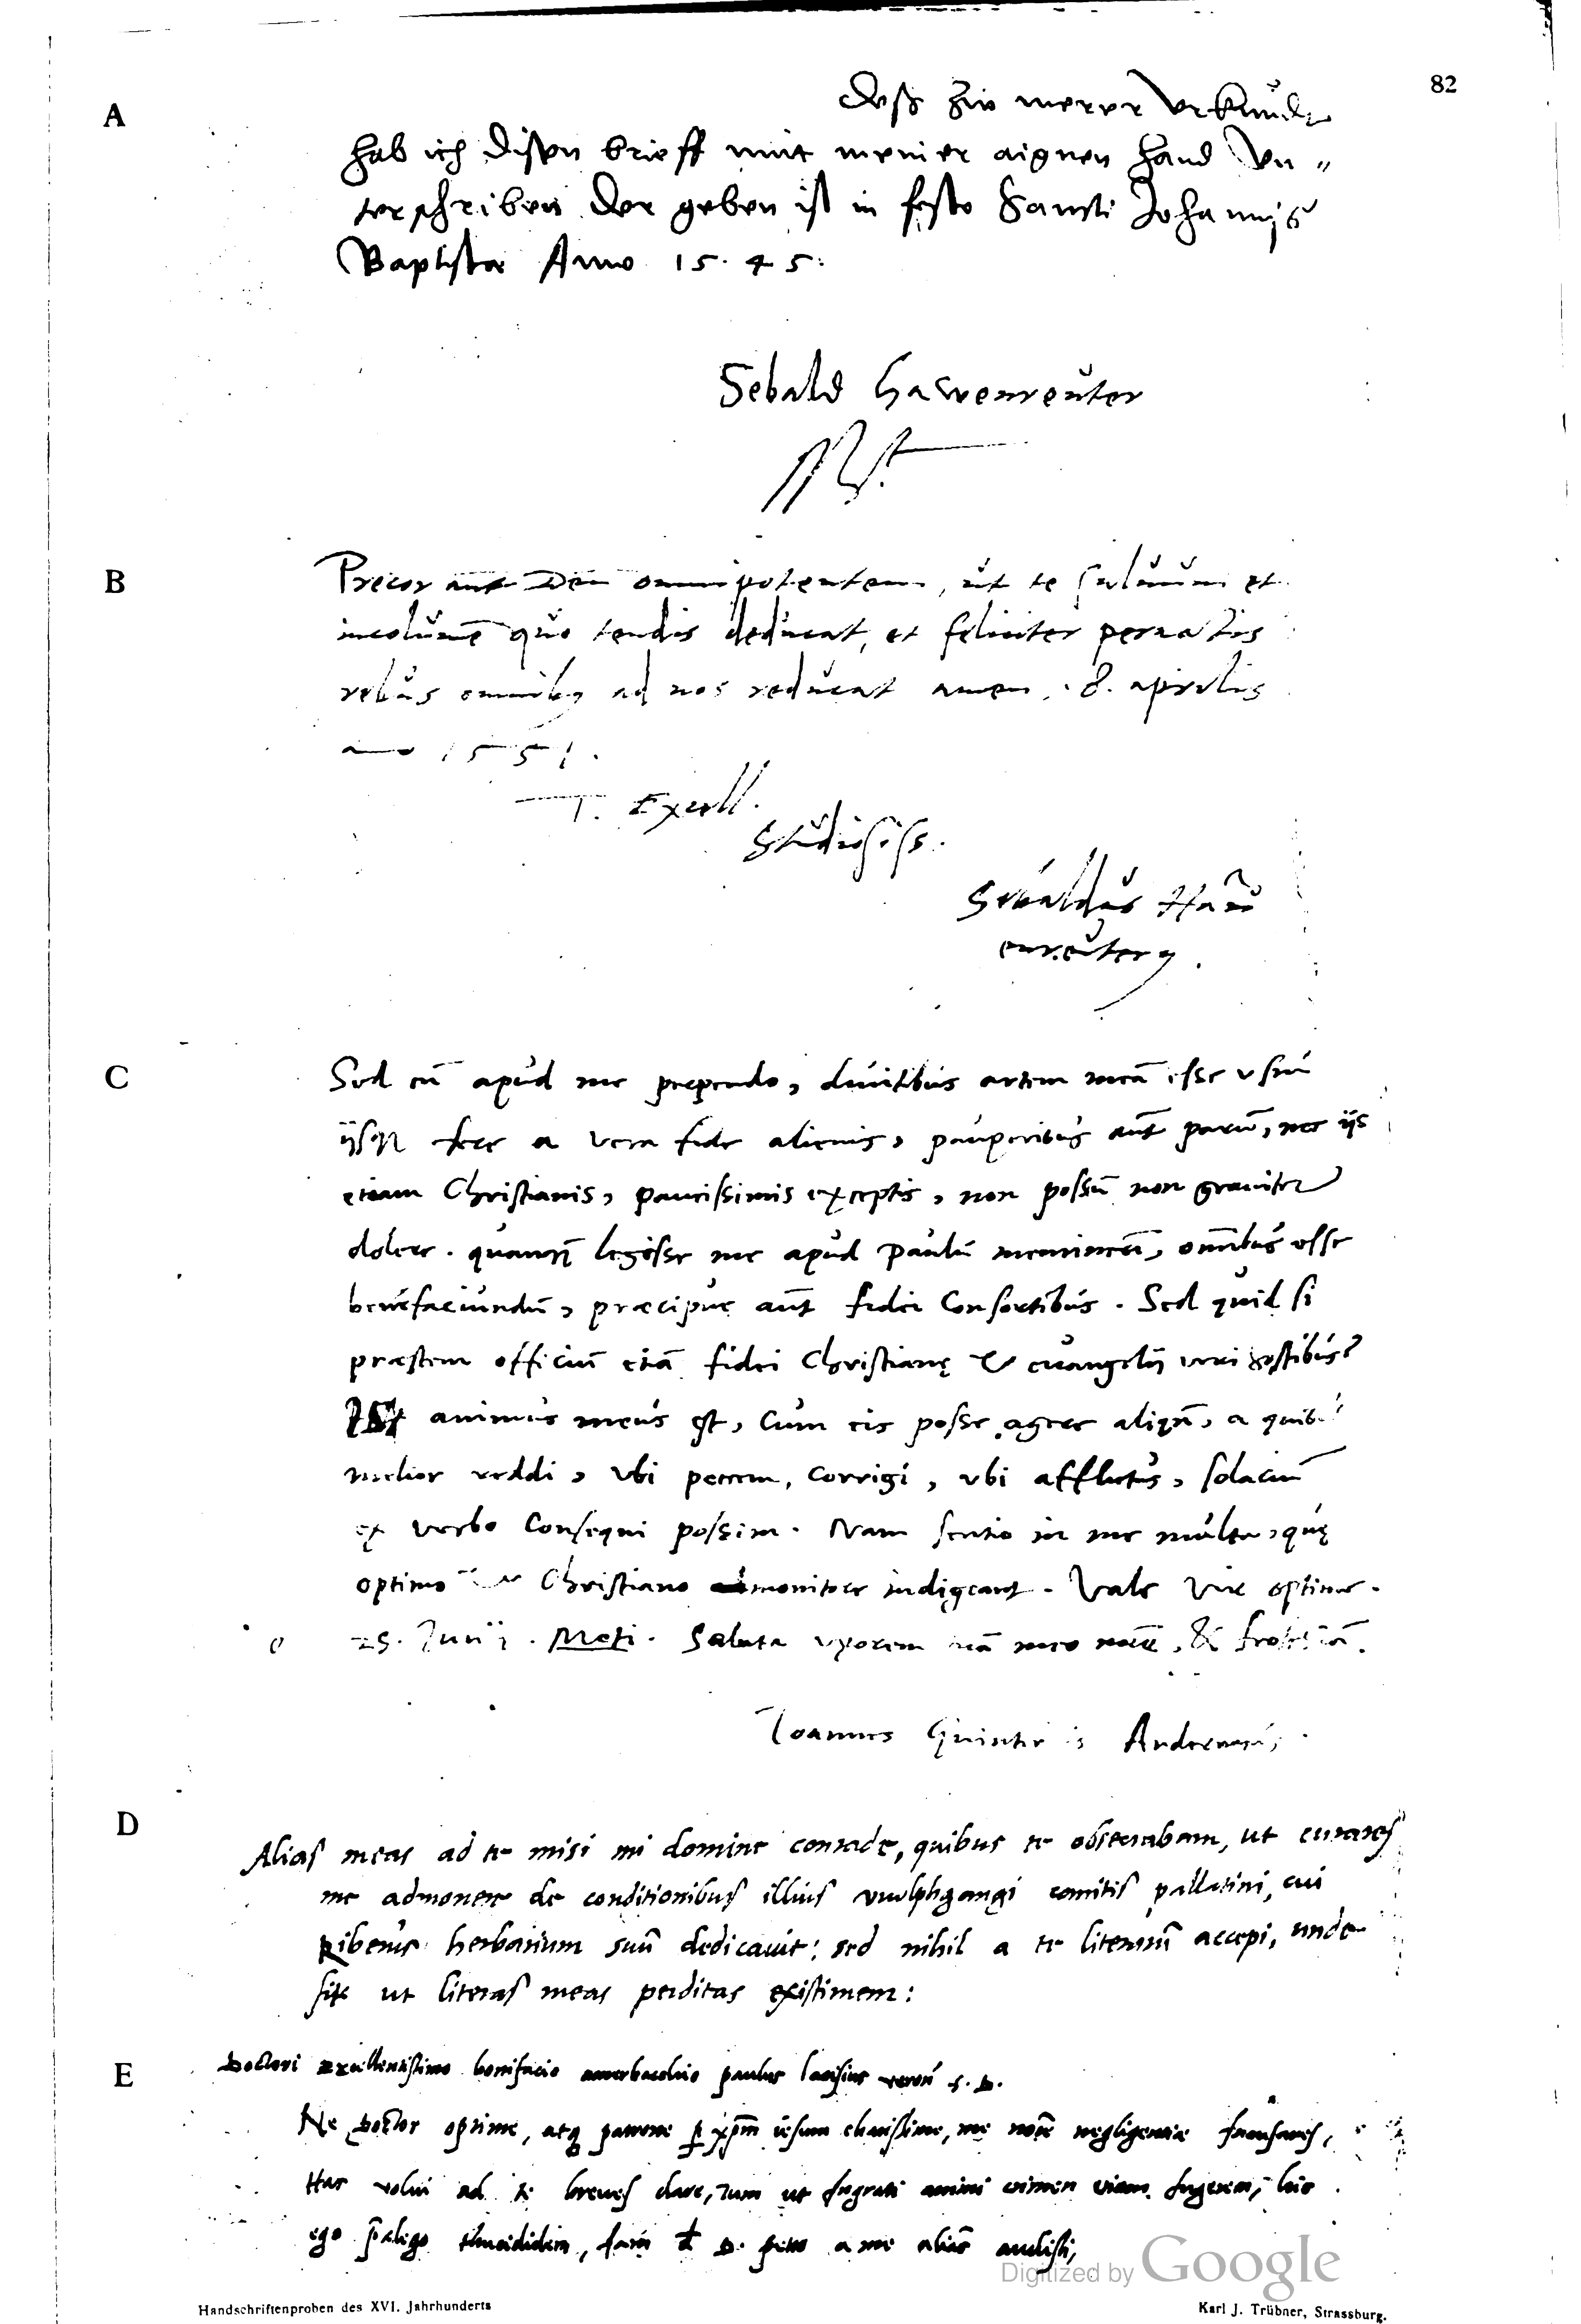 82
A
Deß zu merer Vrkundt
hab ich disen brieff mit meiner aignen hand Vn„
terschriben der geben ist in festo Sancti Johannis
Baptistæ Anno 15.45:
Sebald Hawenreuter
B
Precor aūt Deū omnipotentem, ut te saluum et
incolumē quo tendis deducat, et feliciter peractis
rebus omnibꝰ ad nos reducat amen. 8. aprilis
año 1551.
T. Excell.
Studiosiss.
Sebaldus Haw
enreuterꝰ.
C
Sed cū apud me perpendo, diuitibus artem meā esse vsui
ijsqꝫ fere a vera fide alienis, pauperibus aūt parū, nec ijs
etiam Christianis, paucissimis exceptis, non possū non grauiter
dolere. quamqꝫ legisse me apud Paulū meminerā, omībus esse
benefaciundū, præcipue aūt fidei Consortibus. Sed quid si
præstem officiū etiā fidei Christianę & euangelij veri hostibus?
Is animus meus est, Cum eis posse agere aliqn̄, a quibus
melior reddi, vbi peccem, corrigi, vbi afflictus, solaciū
ex verbo Consequi possim. Nam sentio in me multa, quę
optimo Christiano admonitore indigeant. Vale vir optime.
25. Junij. Meti. Saluta vxorem tuā meo noīe, &
Ioannes Guinterius Andernacus.
D
Alias meas ad te misi mi domine conrade, quibus te obsecrabam, ut curares
me admonere de conditionibus illius vuolphgangi comitis pallatini, cui
Ribenus herbarium suū dedicauit: sed nihil a te literarū accepi, unde
fit ut literas meas perditas existimem:
E
Doctori Excellentissimo bonifacio amerbachio paulus lacisius veroñ s. D.
Ne Doctor optime, atqꝫ patrone ꝑ xp̄m iesum charissime, me noīe negligentiæ Incusares,
Has volui ad te breues dare, Tum ut Ingrati animi crimen etiam fugerem, hic
ego p̄lego thucididem, a me alias audisti,
Digitized by Google
Handschriftenproben des XVI. Jahrhunderts
Karl J. Trübner, Strassburg.